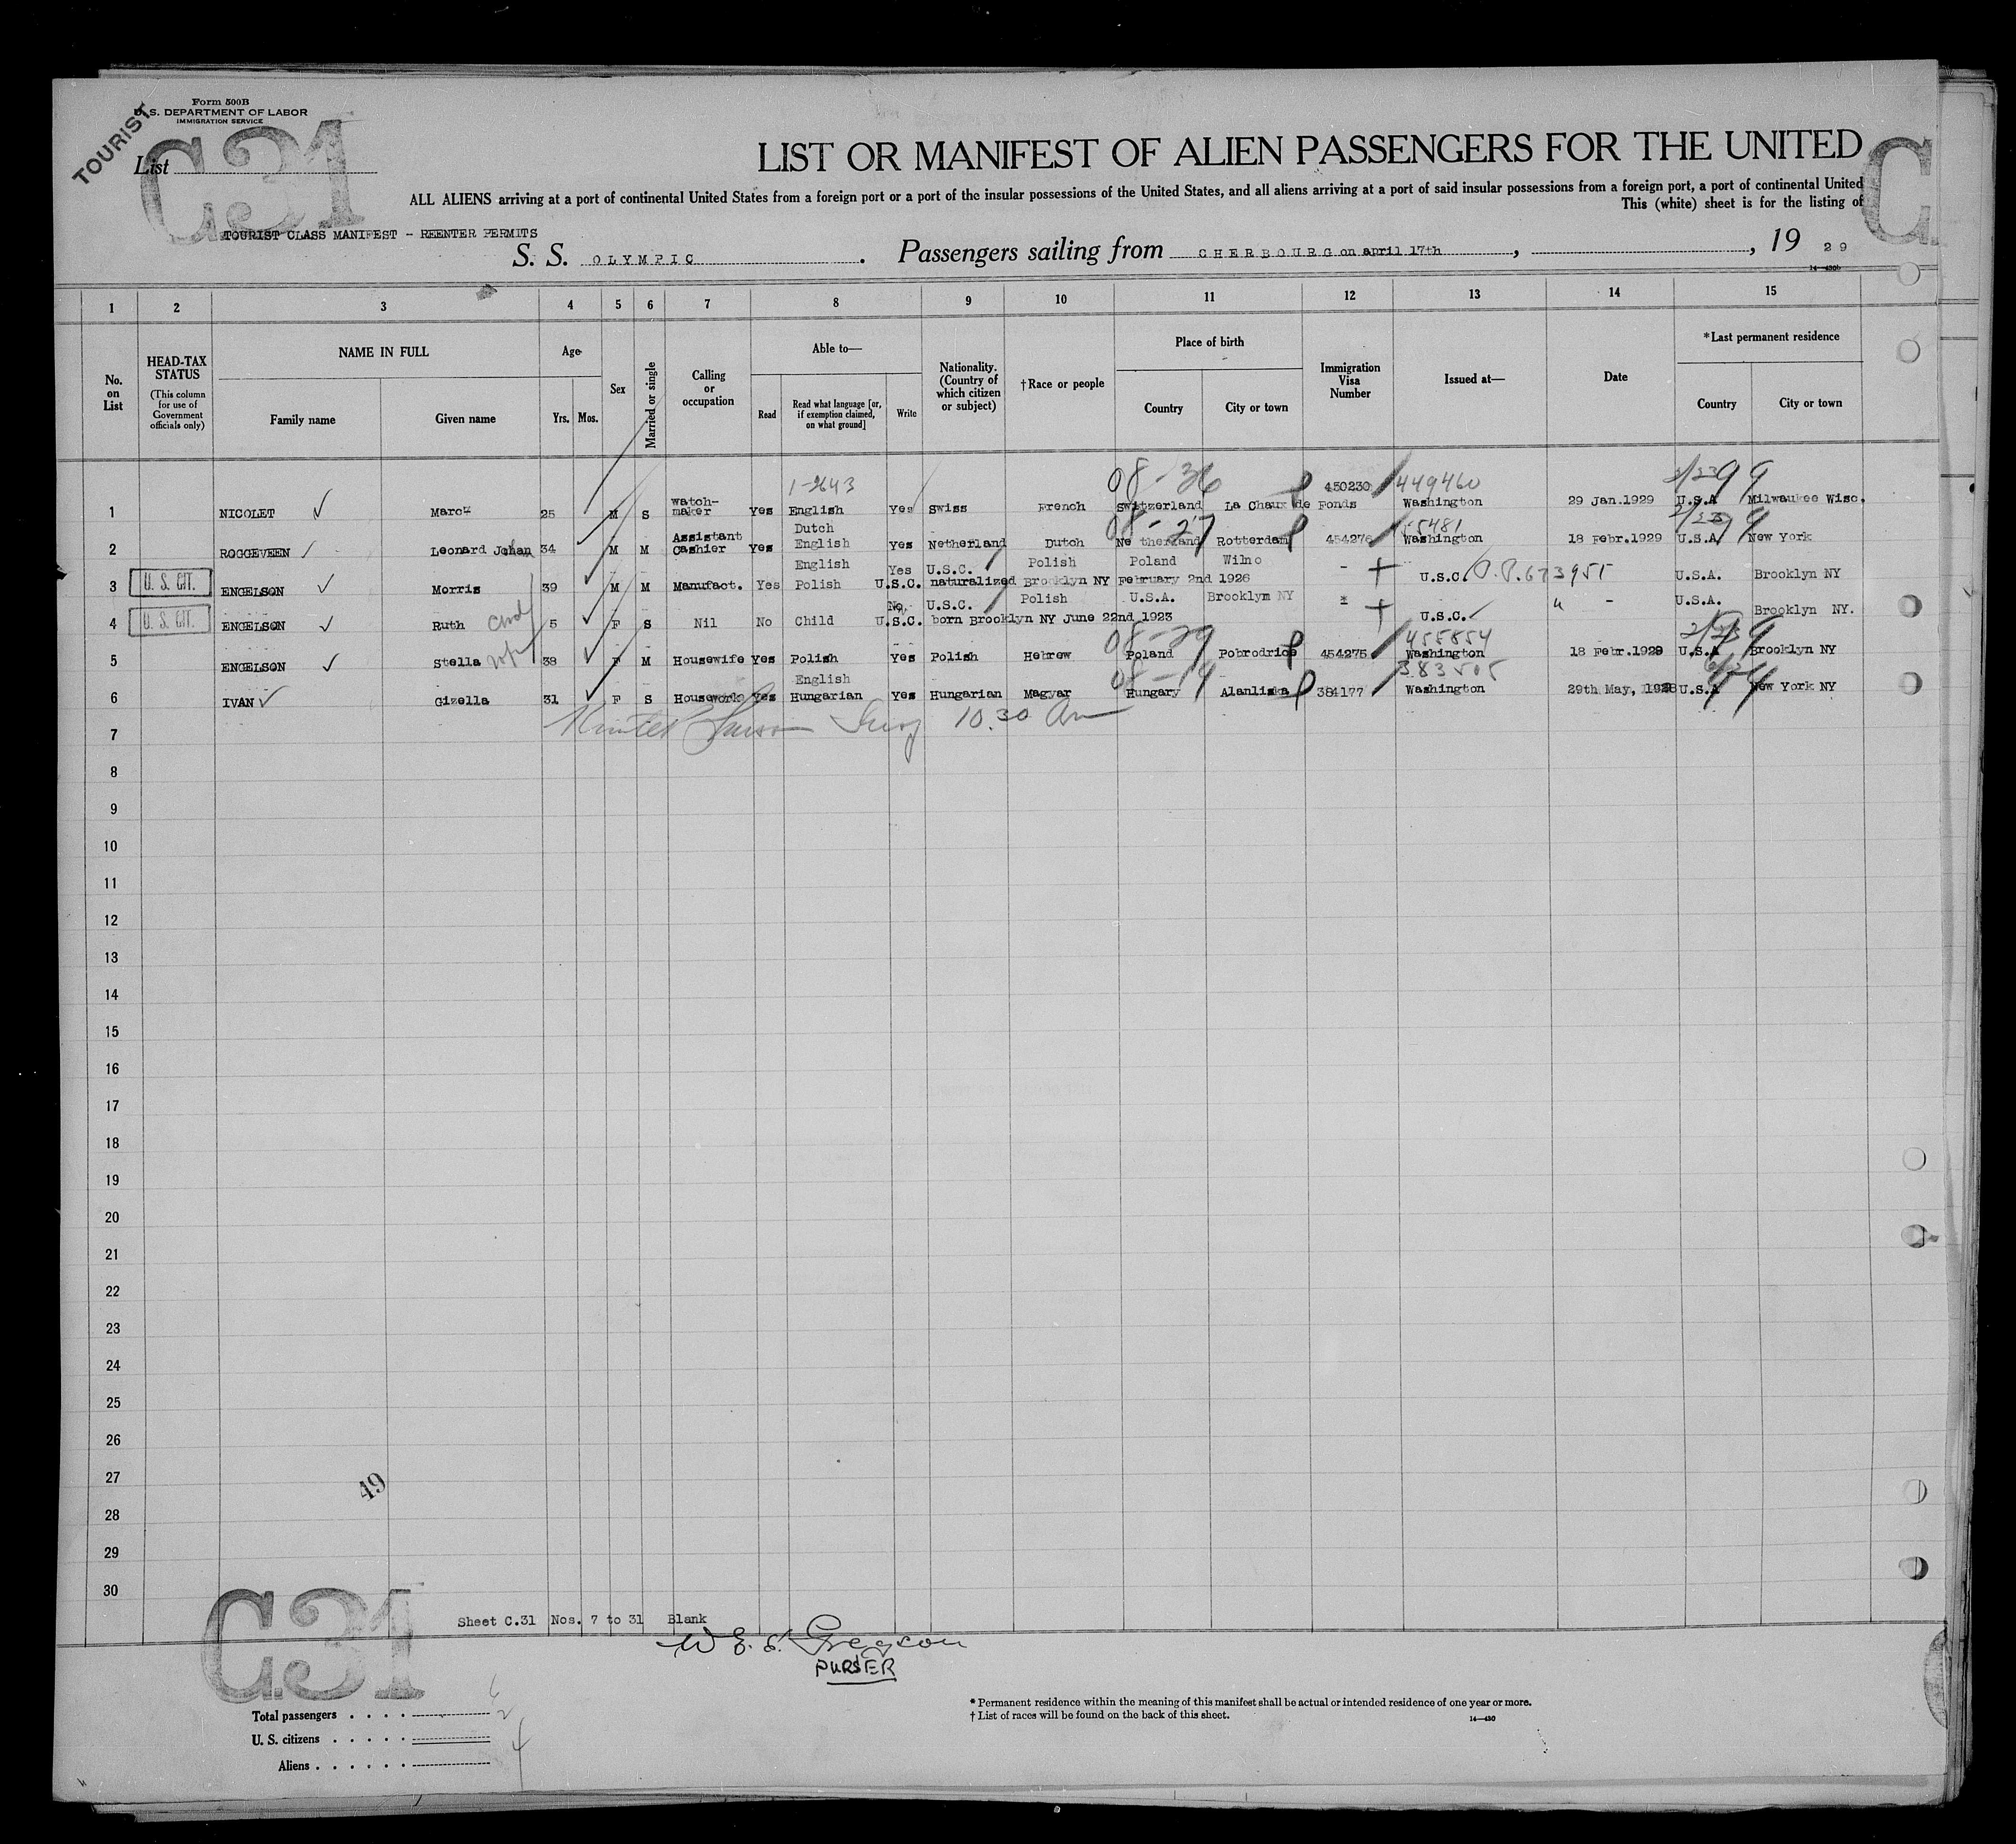 Form 500B
U. S. DEPARTMENT OF LABOR
IMMIGRATION SERVICE
TOURIST
List
C31
LIST OR MANIFEST OF ALIEN PASSENGERS FOR THE UNITED
ALL ALIENS arriving at a port of continental United States from a foreign port or a port of the insular possessions of the United States, and all aliens arriving at a port of said insular possessions from a foreign port, a port of continental United
This (white) sheet is for the listing of
TOURIST CLASS MANIFEST - REENTER PERMITS
S. S. OLYMPIC. Passengers sailing from CHERBOURG on april 17th, , 19 29
14-430b
1 2 3 4 5 6 7 8 9 10 11 12 13 14 15
No. on List
HEAD-TAX STATUS
(This column for use of Government officials only)
NAME IN FULL
Family name Given name
Age
Yrs. Mos.
Sex
Married or single
Calling or occupation
Able to—
Read
Read what language [or, if exemption claimed, on what ground]
Write
Nationality. (Country of which citizen or subject)
†Race or people
Place of birth
Country City or town
Immigration Visa Number
Issued at—
Date
*Last permanent residence
Country City or town
1-2643 08-36 449460
1 NICOLET Marc 25 M S watch-maker Yes English Yes Swiss French Switzerland La Chaux de Fonds 450230 Washington 29 Jan.1929 U.S.A Milwaukee Wisc.
08-27 55481
2 ROGGEVEEN Leonard Johan 34 M M Assistant Cashier Yes Dutch English Yes Netherland Dutch Ne therland Rotterdam 454276 Washington 18 Febr.1929 U.S.A New York
3 U. S. CIT. ENGELSON Morris 39 M M Manufact. Yes English Polish Yes U.S.C. Polish Poland Wilno - U.S.C. P.P.673955 U.S.A. Brooklyn NY
U.S.C. naturalized Brooklyn NY February 2nd 1926
4 U. S. CIT. ENGELSON Ruth 5 F S Nil No Child No U.S.C. Polish U.S.A. Brooklyn NY U.S.C. " - U.S.A. Brooklyn NY.
U.S.C. born Brooklyn NY June 22nd 1923
08-29 455854
5 ENGELSON Stella wife 38 F M Housewife Yes Polish Yes Polish Hebrew Poland Pobrodrice 454275 Washington 18 Febr.1929 U.S.A Brooklyn NY
08-14 383505
6 IVAN Gizella 31 F S Housework Yes English Hungarian Yes Hungarian Magyar Hungary Alanliska 384177 Washington 29th May, 1928 U.S.A New York NY
10.30 Am
7
8
9
10
11
12
13
14
15
16
17
18
19
20
21
22
23
24
25
26
27
28
29
30
49
C31
Sheet C.31 Nos. 7 to 31 Blank
PURSER
Total passengers 6
U. S. citizens 2
Aliens 4
* Permanent residence within the meaning of this manifest shall be actual or intended residence of one year or more.
† List of races will be found on the back of this sheet.
14-430